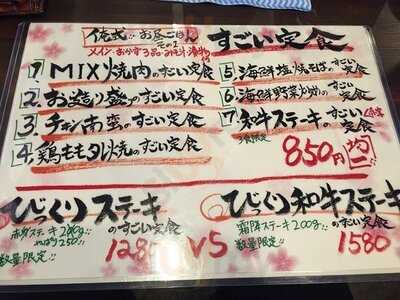 俺式!! お昼ごはん その1 すごい定食
メイン・おかず3品・みそ汁・漬物付
1. MIX焼肉のすごい定食
2. お造り盛りのすごい定食
3. チキン南蛮のすごい定食
4. 鶏ももタタキ焼のすごい定食
5 海鮮塩焼そばのすごい定食
6 海鮮野菜炒めのすごい定食
7 和牛ステーキのすごい定食
850円均一
びっくりステーキのすごい定食
赤身ステーキ200g!!
数量限定!!
128
VS
びっくり和牛ステーキのすごい定食
霜降ステーキ200g!!
数量限定!!
1580